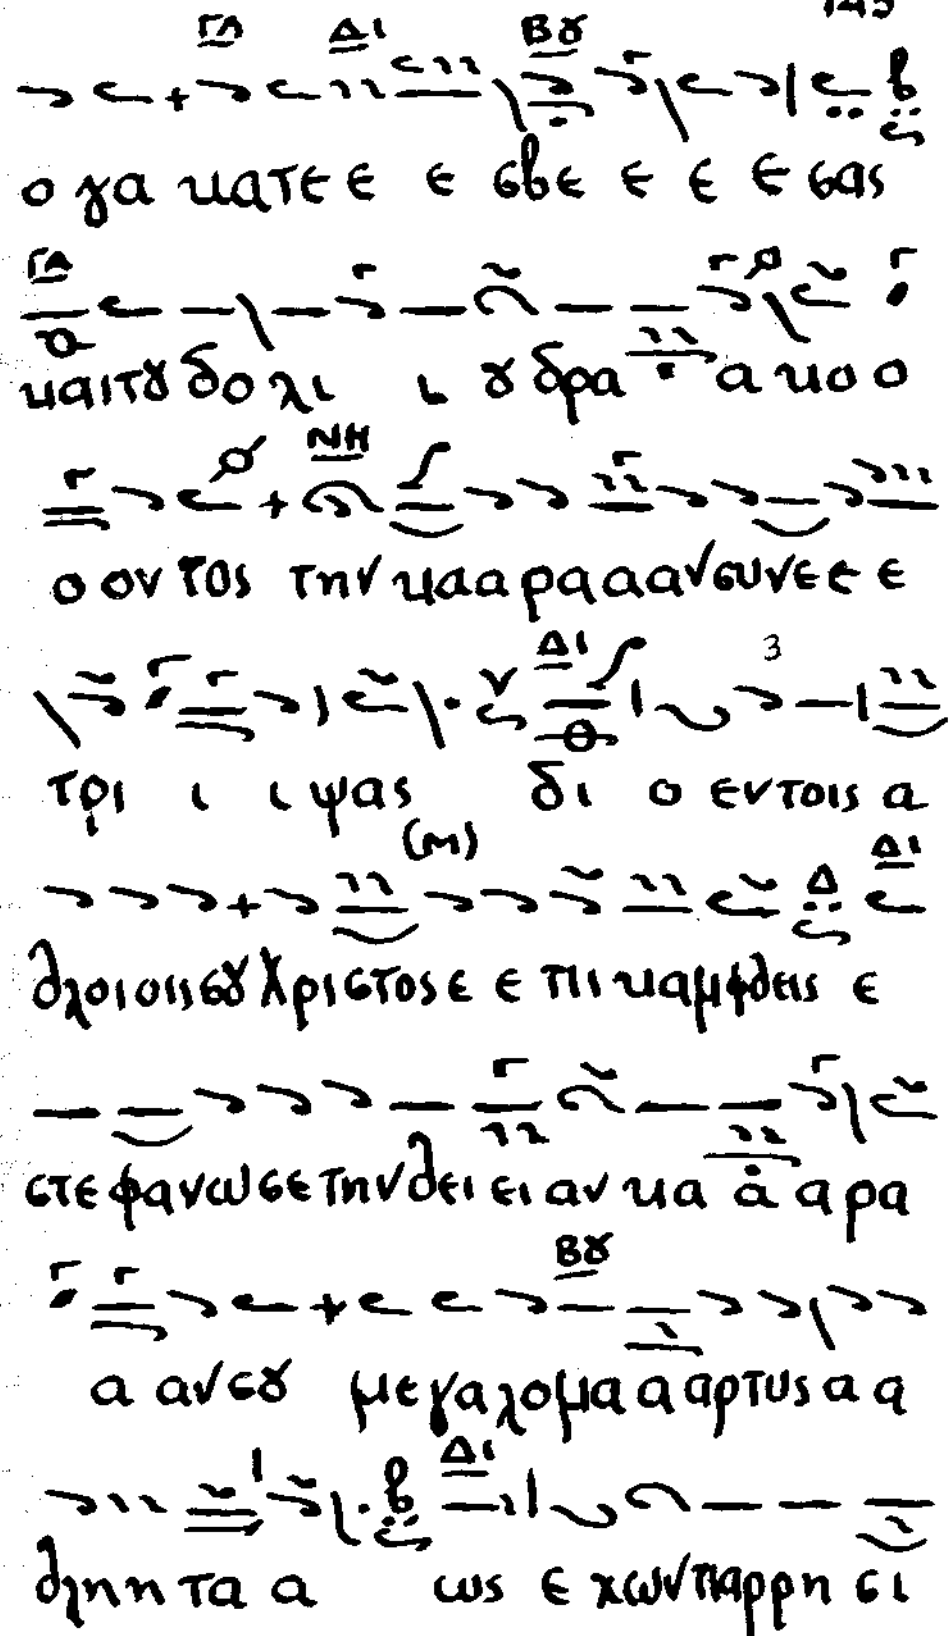 145
ΓΑ Δι Βȣ
ο γα κατε ε ε σβε ε ε ε σας
ΓΑ
και τȣ δο λι ι ȣ δρα α κο ο
ΝΗ
ο ον τος την κα α ρα α α αν συν ε ε ε
Δι 3
τρι ι ι ψας δι ο εν τοις α
(Μ) Δ Δι
θλοι οις σȣ Χριστος ε ε πι καμφθεις ε
στε φανωσε την θει ει αν κα α α ρα
Βȣ
α αν σȣ μεγαλομα α αρτυς α α
Δι
θλη η τα α ως ε χων παρρη σι